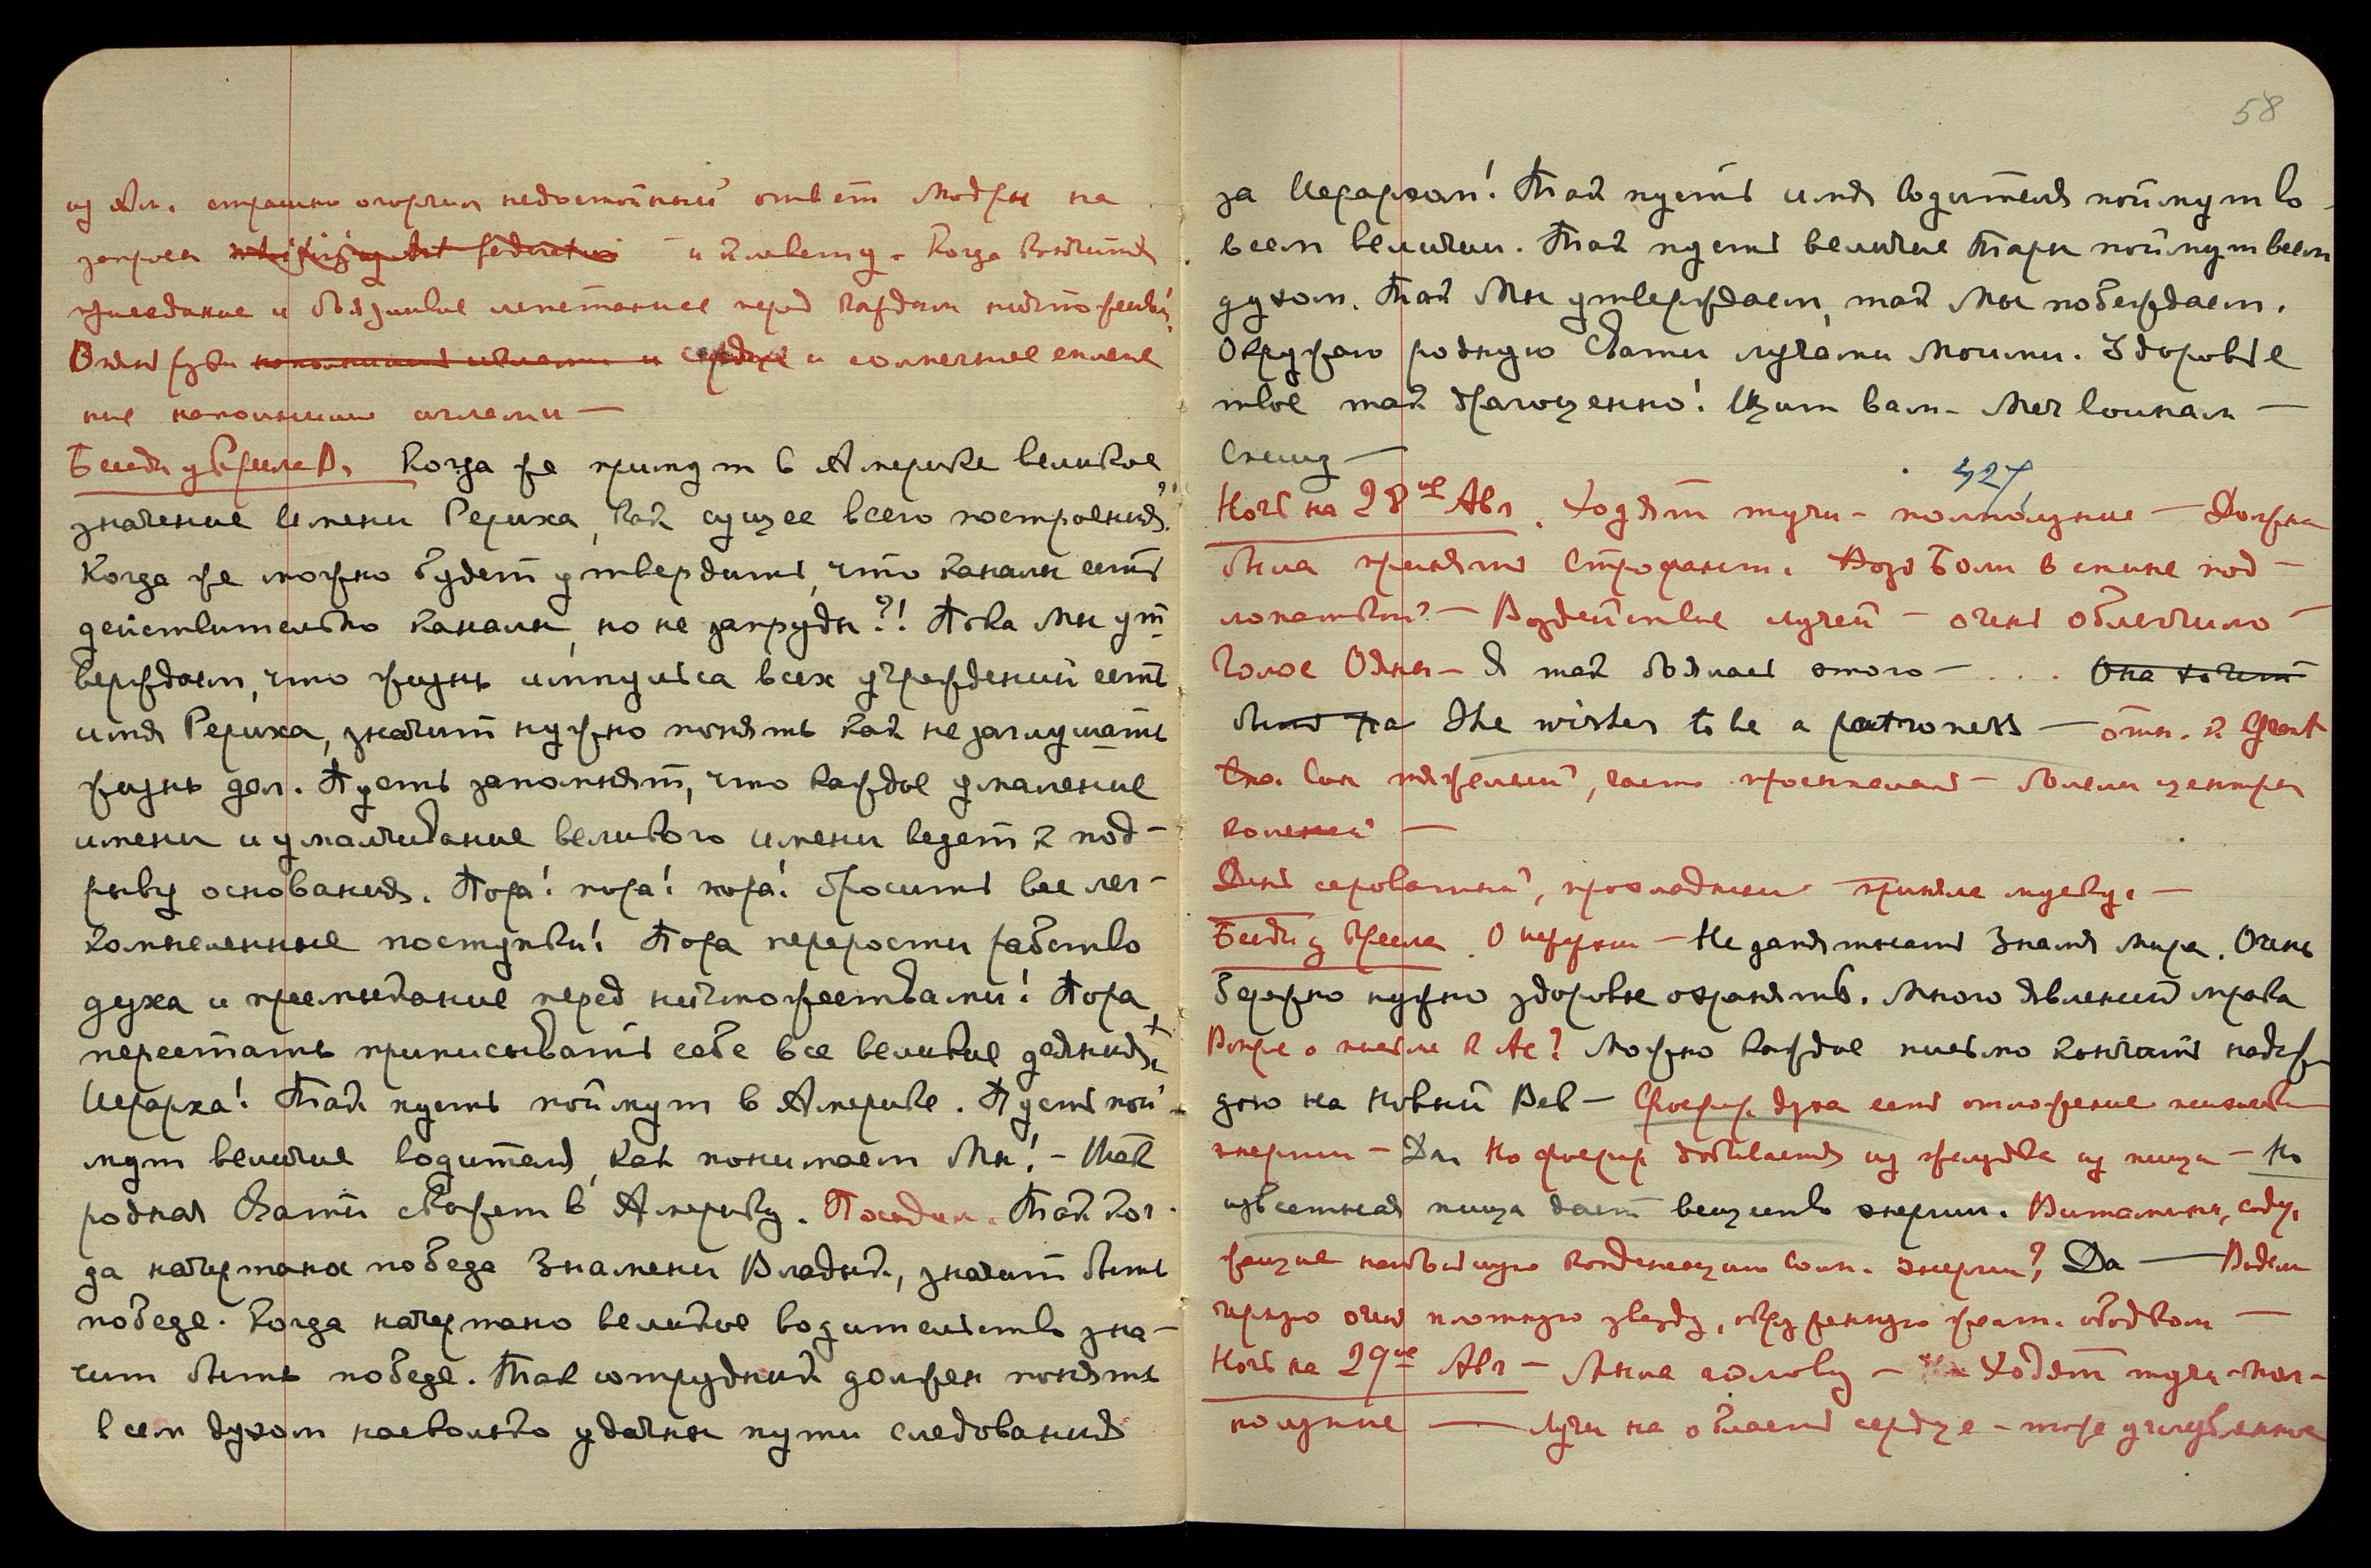 из Ам. страшно огорчил недостойный ответ Модры на
запрос и клевету. Когда кончится
приседание и боязливое лепетание перед каждым
Опять зубы и сердце и солнечное сплете
ние наполнились иглами —
Беседа у Кресла В. Когда же примут в Америке великое
значение Имени Рериха, как сущее всего построения?
Когда же можно будет утвердить, что каналы есть
действительно каналы, но не запруды?! Пока Мы ут
верждаем, что жизнь импульса всех учреждений есть
имя Рериха, значит нужно понять как не заглушать
жизнь дел. Пусть запомнят, что каждое умаление
имени и умалчивание великого имени ведет к под-
рыву основания. Пора! пора! пора! бросить все лег-
комысленные поступки! Пора перерости рабство
духа и пресмыкание перед ничтожествами! Пора
перестать приписывать себе все великие деяния
Иерарха! Так пусть поймут в Америке. Пусть пой-
мут величие водителя, как понимаем Мы! - Так
родная Свати скажет в Америку. Поединок. Так ког-
да начертана победа Знамени Владык, значит быть
победе. Когда начертано великое водительство зна-
чит быть победе. Так сотрудник должен понять
всем духом насколько удачны пути следования
58
за Иерархом! Так пусть имя водителя поймут во
всем величии. Так пусть величие Тары поймут всем
духом. Так Мы утверждаем, так Мы побеждаем.
Окружаю родную Свати лучами Моими. Здоровье
твое так драгоценно! Щит вам - Меч воинам —
Спешу —
427
Ночь на 28ое Авг. Ходят тучи - полнолуние — Должна
была принять Строфант. Боли в спине под
лопаткой — Воздействие лучей — очень облегчило —
Голос Одны — Я так боялась этого — . . . Она хочет
быть па She wishes to be a patroness — отн. к Grant
Сон тяжелый, часто просыпалась — болели центры
коленей —
День сероватый, прохладный приняла мускус. —
Беседа у Кресла. О церкви — Не запятнать Знамя Мира. Очень
бережно нужно здоровье охранять. Много явлений мрака
Вопрос о письме к Ас? Можно каждое письмо кончать надеж
дою на Новый Век — Фосфор. духа есть отложение психической
энергии — Да, Но фосфор добывается из желудка из пищи — Но
известная пища дает вещество энергии. Витамины, содер
жащие наибольшую конденсацию солн. энергии? Да — Видела
черную очень плотную звезду, окруженную желт. ободком —
Ночь на 29ое Авг — Мыла голову — Ходят тучи - пол-
нолуние — Лучи на область сердца - тоже углубленные